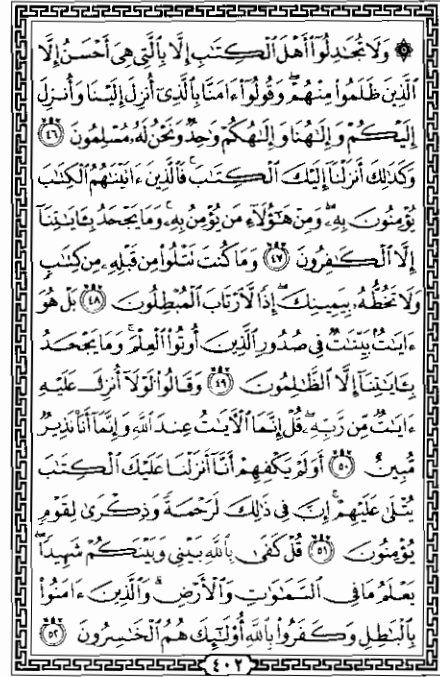 ۞ وَلَا تُجَٰدِلُوٓا۟ أَهْلَ ٱلْكِتَٰبِ إِلَّا بِٱلَّتِى هِىَ أَحْسَنُ إِلَّا
ٱلَّذِينَ ظَلَمُوا۟ مِنْهُمْ ۖ وَقُولُوٓا۟ ءَامَنَّا بِٱلَّذِىٓ أُنزِلَ إِلَيْنَا وَأُنزِلَ
إِلَيْكُمْ وَإِلَٰهُنَا وَإِلَٰهُكُمْ وَٰحِدٌ وَنَحْنُ لَهُۥ مُسْلِمُونَ ٤٦
وَكَذَٰلِكَ أَنزَلْنَآ إِلَيْكَ ٱلْكِتَٰبَ ۚ فَٱلَّذِينَ ءَاتَيْنَٰهُمُ ٱلْكِتَٰبَ
يُؤْمِنُونَ بِهِۦ ۖ وَمِنْ هَٰٓؤُلَآءِ مَن يُؤْمِنُ بِهِۦ ۚ وَمَا يَجْحَدُ بِـَٔايَٰتِنَآ
إِلَّا ٱلْكَٰفِرُونَ ٤٧ وَمَا كُنتَ تَتْلُوا۟ مِن قَبْلِهِۦ مِن كِتَٰبٍ
وَلَا تَخُطُّهُۥ بِيَمِينِكَ ۖ إِذًا لَّٱرْتَابَ ٱلْمُبْطِلُونَ ٤٨ بَلْ هُوَ
ءَايَٰتٌۢ بَيِّنَٰتٌ فِى صُدُورِ ٱلَّذِينَ أُوتُوا۟ ٱلْعِلْمَ ۚ وَمَا يَجْحَدُ
بِـَٔايَٰتِنَآ إِلَّا ٱلظَّٰلِمُونَ ٤٩ وَقَالُوا۟ لَوْلَآ أُنزِلَ عَلَيْهِ
ءَايَٰتٌ مِّن رَّبِّهِۦ ۖ قُلْ إِنَّمَا ٱلْءَايَٰتُ عِندَ ٱللَّهِ وَإِنَّمَآ أَنَا۠ نَذِيرٌ
مُّبِينٌ ٥٠ أَوَلَمْ يَكْفِهِمْ أَنَّآ أَنزَلْنَا عَلَيْكَ ٱلْكِتَٰبَ
يُتْلَىٰ عَلَيْهِمْ ۚ إِنَّ فِى ذَٰلِكَ لَرَحْمَةً وَذِكْرَىٰ لِقَوْمٍ
يُؤْمِنُونَ ٥١ قُلْ كَفَىٰ بِٱللَّهِ بَيْنِى وَبَيْنَكُمْ شَهِيدًا ۖ
يَعْلَمُ مَا فِى ٱلسَّمَٰوَٰتِ وَٱلْأَرْضِ ۗ وَٱلَّذِينَ ءَامَنُوا۟
بِٱلْبَٰطِلِ وَكَفَرُوا۟ بِٱللَّهِ أُو۟لَٰٓئِكَ هُمُ ٱلْخَٰسِرُونَ ٥٢
٤٠٢